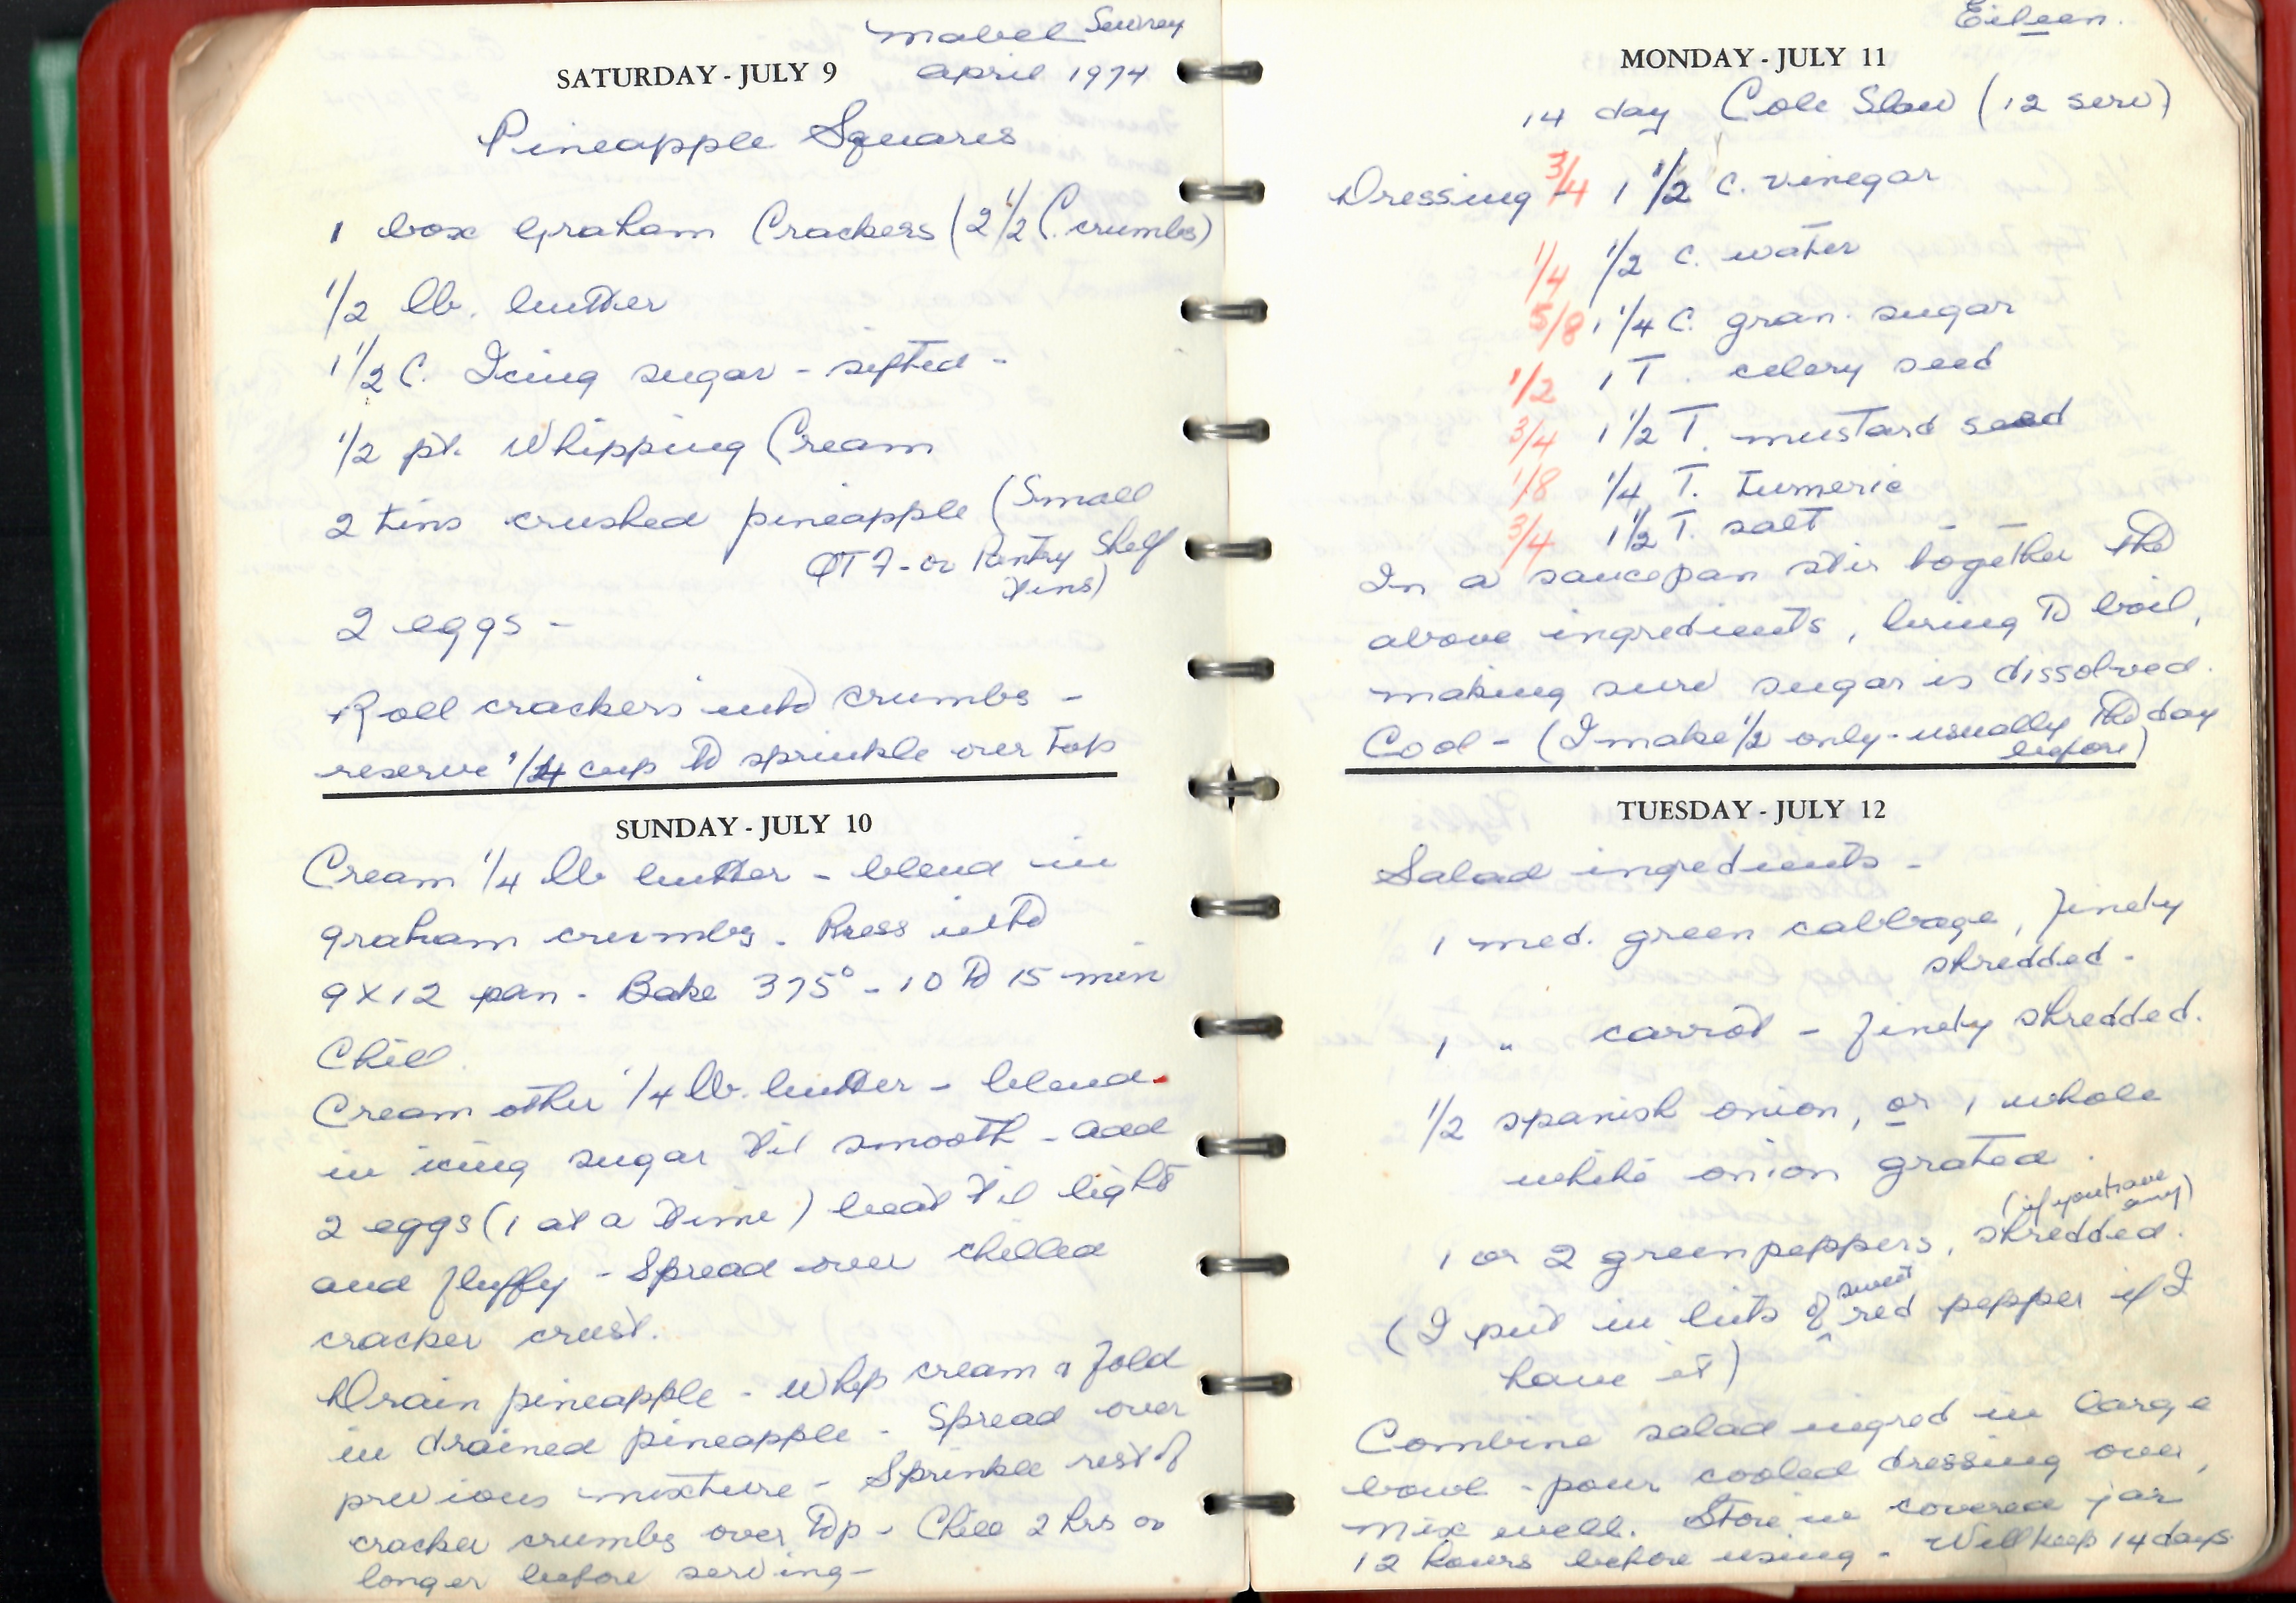 Mabel Sewrey
SATURDAY - JULY 9 April 1974
Pineapple Squares
1 box Graham Crackers (2 1/2 C. crumbs)
1/2 lb. butter
1 1/2 C. Icing sugar - sifted -
1/2 pt. Whipping Cream
2 tins crushed pineapple (Small
QTF - or Pantry Shelf
tins)
2 eggs -
Roll crackers into crumbs -
reserve 1/4 cup to sprinkle over top
SUNDAY - JULY 10
Cream 1/4 lb butter - blend in
graham crumbs. Press into
9x12 pan - Bake 375° - 10 to 15 min
Chill.
Cream other 1/4 lb. butter - blend
in icing sugar til smooth - add
2 eggs (1 at a time) beat til light
and fluffy - Spread over chilled
cracker crust.
Drain pineapple - Whip cream & fold
in drained pineapple - Spread over
previous mixture - Sprinkle rest of
cracker crumbs over top - Chill 2 hrs or
longer before serving -
Eileen.
MONDAY - JULY 11
14 day Cole Slaw (12 serv)
Dressing - 3/4 1 1/2 c. vinegar
1/4 1/2 c. water
5/8 1 1/4 C. gran. sugar
1/2 1 T. celery seed
3/4 1 1/2 T. mustard seed
1/8 1/4 T. tumeric
3/4 1 1/2 T. salt
In a saucepan stir together the
above ingredients, bring to boil,
making sure sugar is dissolved.
Cool - (I make 1/2 only - usually the day
before)
TUESDAY - JULY 12
Salad ingredients -
1 med. green cabbage, finely
shredded -
1 " carrot - finely shredded.
1/2 spanish onion, or 1 whole
white onion grated.
(if you have
any)
1 or 2 green peppers, shredded.
(I put in bits of sweet red pepper if I
have it)
Combine salad ingred in large
bowl - pour cooled dressing over,
mix well. Store in covered jar
12 hours before using - Will keep 14 days